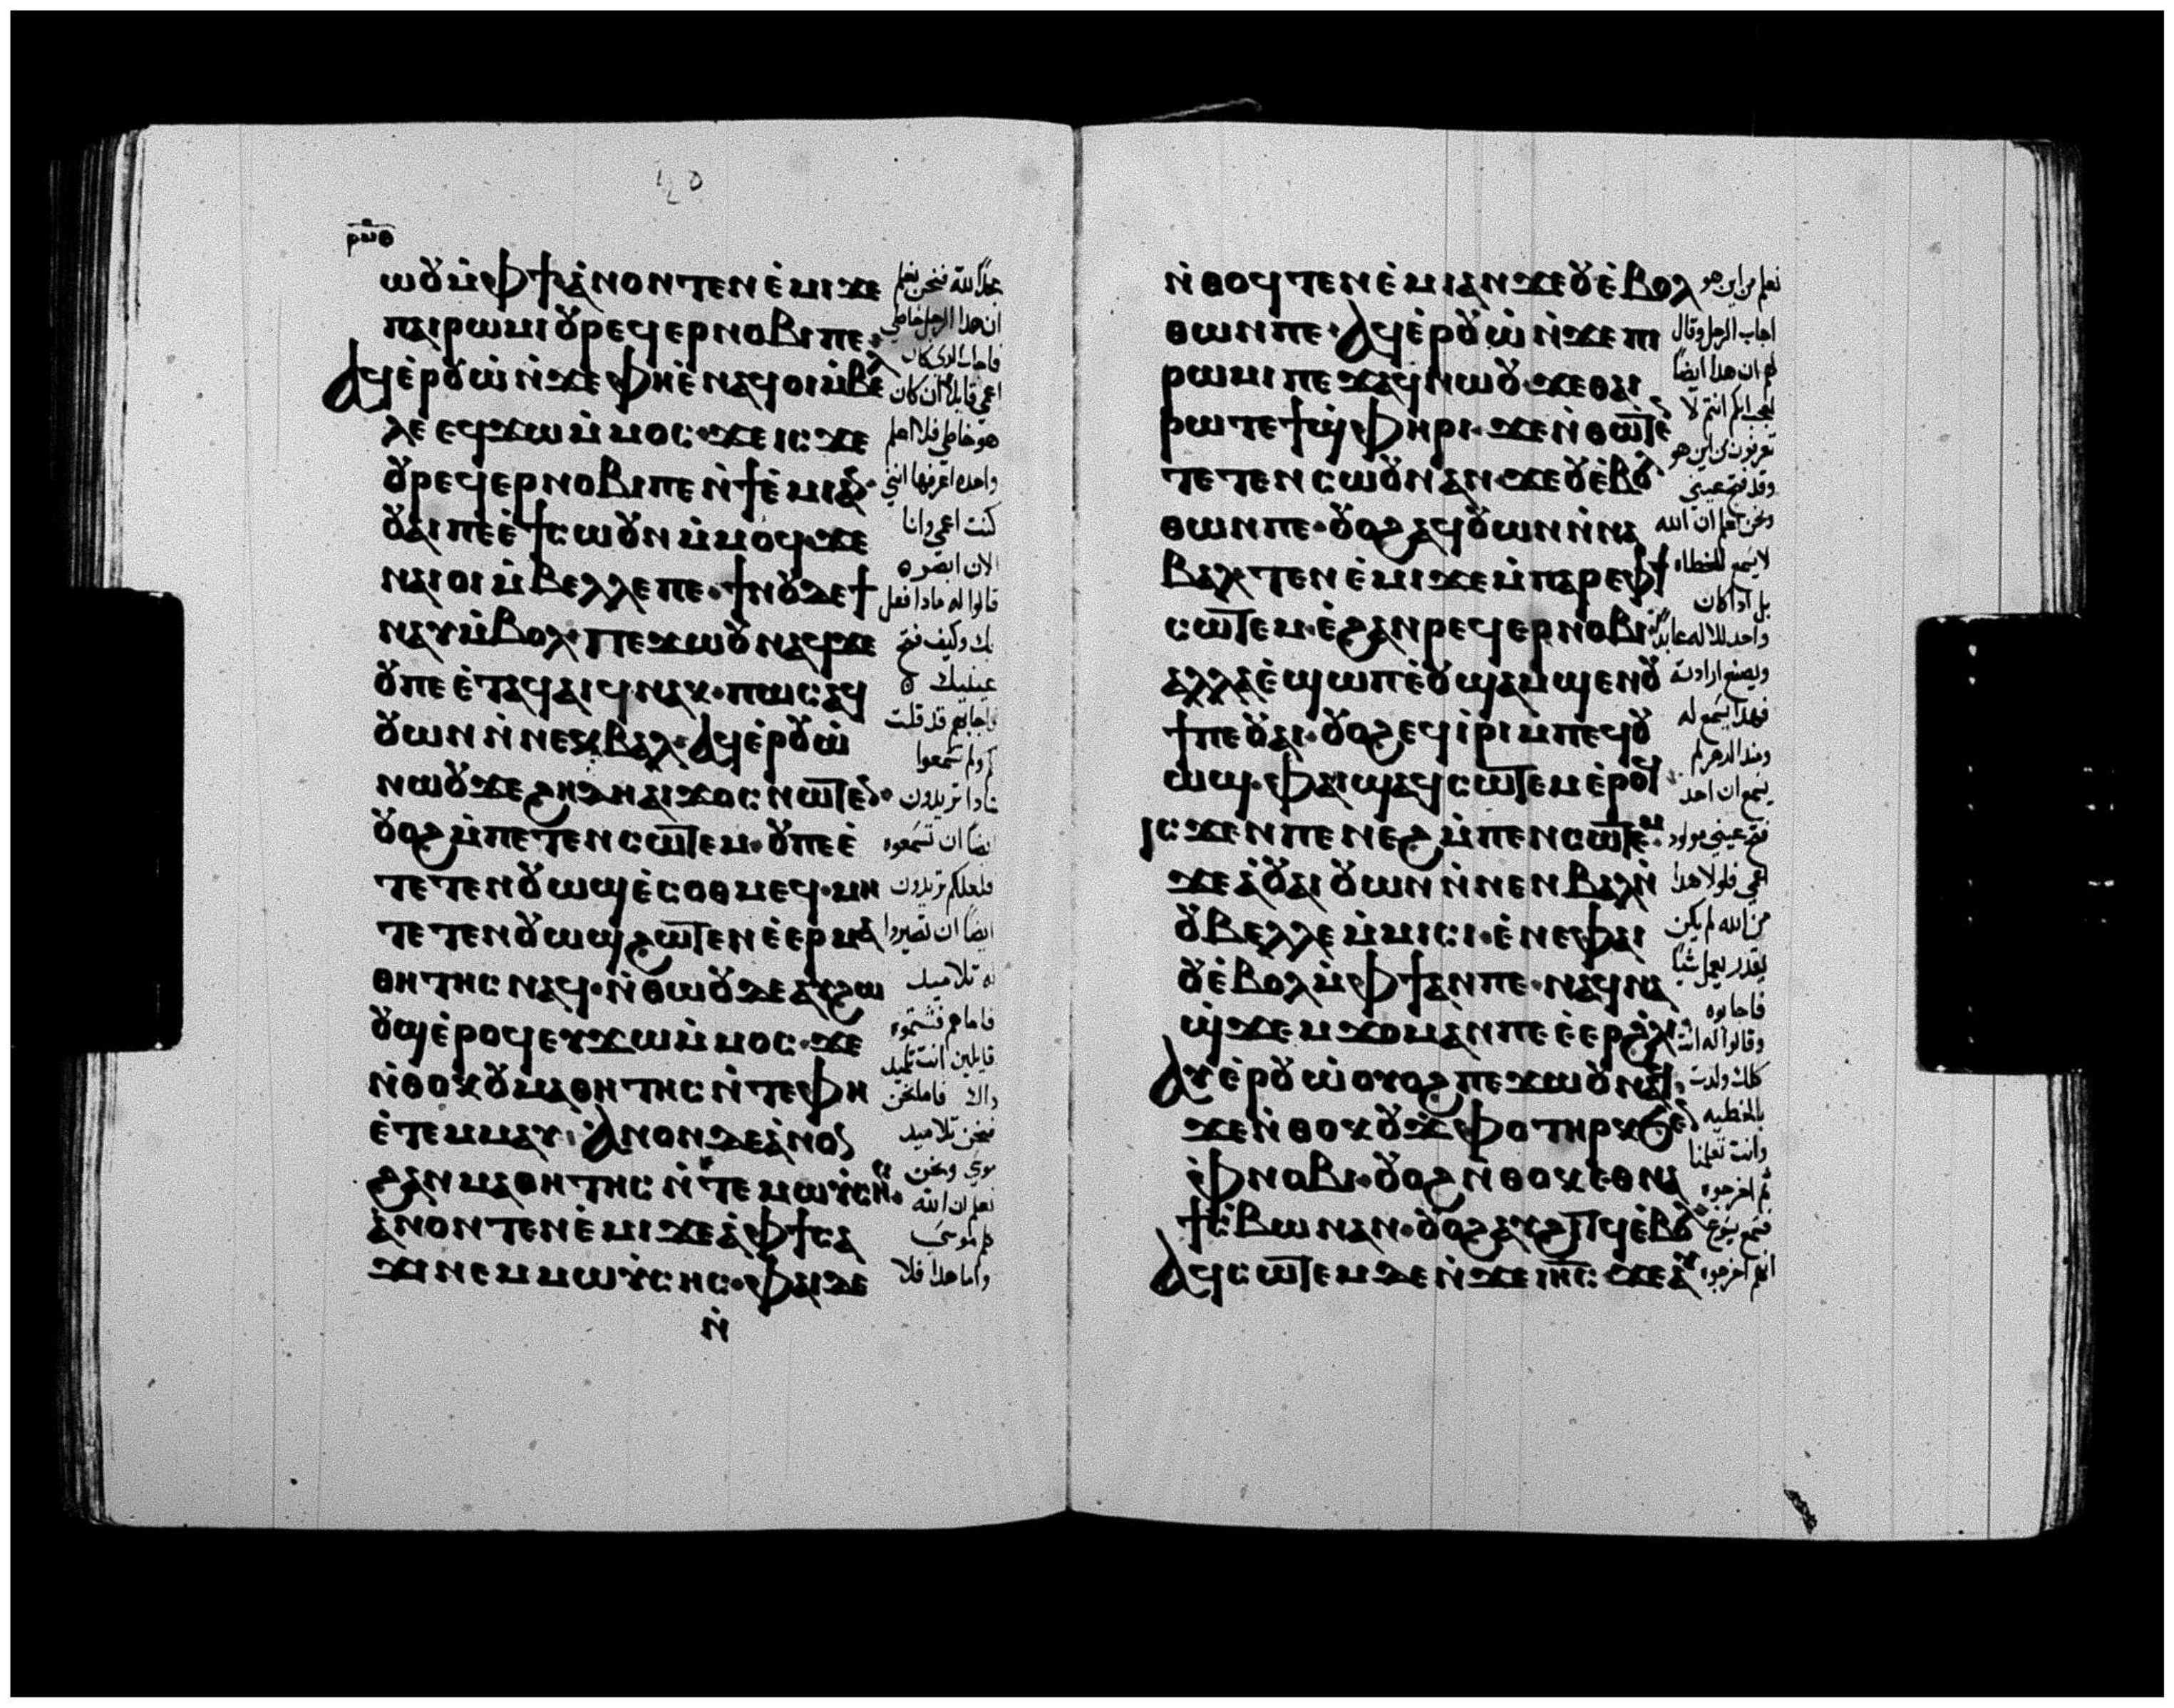 ⲣⲙⲑ
ⲱⲟⲩ ⲙ̀ⲫϯ ⲁ̀ⲛⲟⲛ ⲧⲉⲛⲉ̀ⲙⲓ ϫⲉ
ⲡⲁⲓⲣⲱⲙⲓ ⲟⲩⲣⲉϥⲉⲣⲛⲟⲃⲓ ⲡⲉ·
ⲁϥⲉ̀ⲣⲟⲩⲱ̀ ⲛ̀ϫⲉ ⲫⲏⲉ̀ⲛⲁϥⲟⲓ ⲙ̀ⲃⲉⲗ
ⲗⲉ ⲉϥϫⲱ ⲙ̀ⲙⲟⲥ· ϫⲉ ⲓⲥϫⲉ
ⲟⲩⲣⲉϥⲉⲣⲛⲟⲃⲓ ⲡⲉ ⲛ̀ϯⲉ̀ⲙⲓ ⲁⲛ·
ⲟⲩⲁⲓ ⲡⲉ ⲉ̀ϯⲥⲱⲟⲩⲛ ⲙ̀ⲙⲟϥ· ϫⲉ
ⲛⲁⲓⲟⲓ ⲙ̀ⲃⲉⲗⲗⲉ ⲡⲉ· ϯⲛⲟⲩ ⲇⲉ ϯ
ⲛⲁⲩ ⲙ̀ⲃⲟⲗ· ⲡⲉϫⲱⲟⲩ ⲛⲁϥ ϫⲉ
ⲟⲩ ⲡⲉ ⲉ̀ⲧⲁϥⲁⲓϥ ⲛⲁⲕ· ⲡⲱⲥ ⲁϥ
ⲟⲩⲱⲛ ⲛ̀ⲛⲉⲕⲃⲁⲗ· ⲁϥⲉ̀ⲣⲟⲩⲱ̀
ⲛⲱⲟⲩ ϫⲉ ϩⲏⲇⲏ ⲁⲓϫⲟⲥ ⲛⲱⲧⲉⲛ·
ⲟⲩⲟϩ ⲙ̀ⲡⲉⲧⲉⲛⲥⲱⲧⲉⲙ· ⲟⲩ ⲡⲉ ⲉ̀
ⲧⲉⲧⲉⲛⲟⲩⲱϣ ⲉ̀ⲥⲟⲑⲙⲉϥ· ⲙⲏ
ⲧⲉⲧⲉⲛⲟⲩⲱϣ ϩⲱⲧⲉⲛ ⲉ̀ⲉⲣⲙⲁ
ⲑⲏⲧⲏⲥ ⲛⲁϥ· ⲛ̀ⲑⲱⲟⲩ ⲇⲉ ⲁⲩϩⲱ
ⲟⲩϣ ⲉ̀ⲣⲟϥ ⲉⲩϫⲱ ⲙ̀ⲙⲟⲥ· ϫⲉ
ⲛ̀ⲑⲟⲕ ⲟⲩⲙⲁⲑⲏⲧⲏⲥ ⲛ̀ⲧⲉ ⲫⲏ
ⲉ̀ⲧⲉⲙⲙⲁⲩ· ⲁⲛⲟⲛ ⲇⲉ ⲁ̀ⲛⲟⲛ
ϩⲁⲛⲙⲁⲑⲏⲧⲏⲥ ⲛ̀ⲧⲉ ⲙⲱⲩⲥⲏⲥ·
ⲁ̀ⲛⲟⲛ ⲧⲉⲛⲉ̀ⲙⲓ ϫⲉ ⲁ̀ⲫϯ ⲥⲁ
ϫⲓ ⲛⲉⲙ ⲙⲱⲩⲥⲏⲥ· ⲫⲁⲓ ⲇⲉ
ⲛ̀
مجدًا لله فنحن نعلم
ان هذا الرجل خاطي
فاجاب الدى كان
اعمى قايلا ان كان
هو خاطي فلا اعلم
واحده اعرفها انني
كنت اعمى وانا
الان ابصر ه
قالوا له مادا فعل
بك وكيف فتح
عينيك ه
فاجابهم قد قلت
لكم ولم تسمعوا
مادا تريدون
ايضا ان تسمعوه
فلعلكم تريدون
ايضا ان تصيروا
له تلاميد
فاما هم فشتموه
قايلين انت تلميد
داك فاما نحن
فنحن تلاميد
موسى ونحن
نعلم ان الله
كلم موسى
واما هدا فلا
ⲛ̀ⲑⲟϥ ⲧⲉⲛⲉ̀ⲙⲓ ⲁⲛ ϫⲉ ⲟⲩⲉ̀ⲃⲟⲗ
ⲑⲱⲛ ⲡⲉ· ⲁϥⲉ̀ⲣⲟⲩⲱ̀ ⲛ̀ϫⲉ ⲡⲓ
ⲣⲱⲙⲓ ⲡⲉϫⲁϥ ⲛⲱⲟⲩ· ϫⲉ ⲑⲁⲓ
ⲣⲱ ⲧⲉ ϯϣ̀ⲫⲏⲣⲓ· ϫⲉ ⲛ̀ⲑⲱⲧⲉⲛ
ⲧⲉⲧⲉⲛⲥⲱⲟⲩⲛ ⲁⲛ· ϫⲉ ⲟⲩⲉ̀ⲃⲟⲗ
ⲑⲱⲛ ⲡⲉ· ⲟⲩⲟϩ ⲁϥⲟⲩⲱⲛ ⲛ̀ⲛⲁ
ⲃⲁⲗ· ⲧⲉⲛⲉ̀ⲙⲓ ϫⲉ ⲙ̀ⲡⲁⲣⲉ ⲫϯ
ⲥⲱⲧⲉⲙ· ⲉ̀ϩⲁⲛⲣⲉϥⲉⲣⲛⲟⲃⲓ·
ⲁⲗⲗⲁ ⲉ̀ϣⲱⲡ ⲉ̀ⲟⲩϣⲁⲙϣⲉⲛⲟⲩ
ϯ ⲡⲉ ⲟⲩⲁⲓ· ⲟⲩⲟϩ ⲉϥⲓ̀ⲣⲓ ⲙ̀ⲡⲉϥⲟⲩ
ⲱϣ· ⲫⲁⲓ ϣⲁϥⲥⲱⲧⲉⲙ ⲉ̀ⲣⲟϥ
ⲓⲥϫⲉⲛ ⲡⲉⲛⲉϩ ⲙ̀ⲡⲉⲛⲥⲱⲧⲉⲙ·
ϫⲉ ⲁ̀ⲟⲩⲁⲓ ⲟⲩⲱⲛ ⲛ̀ⲛⲉⲛⲃⲁⲗ ⲛ̀
ⲟⲩⲃⲉⲗⲗⲉ ⲙ̀ⲙⲓⲥⲓ· ⲉ̀ⲛⲉ ⲫⲁⲓ
ⲟⲩⲉ̀ⲃⲟⲗ ⲙ̀ⲫϯ ⲁⲛ ⲡⲉ· ⲛⲁϥⲛⲁ
ϣ̀ϫⲉⲙϫⲟⲙ ⲁⲛ ⲡⲉ ⲉ̀ⲉⲣϩⲗⲓ·
ⲁⲩⲉ̀ⲣⲟⲩⲱ̀ ⲟⲩⲟϩ ⲡⲉϫⲱⲟⲩ ⲛⲁϥ·
ϫⲉ ⲛ̀ⲑⲟⲕ ⲟⲩϫⲫⲟ ⲧⲏⲣⲕ ϧⲉⲛ
ⲫⲛⲟⲃⲓ· ⲟⲩⲟϩ ⲛ̀ⲑⲟⲕ ⲉⲑⲛⲁ
ϯⲥ̀ⲃⲱ ⲛⲁⲛ· ⲟⲩⲟϩ ⲁⲩϩⲓⲧϥ ⲉ̀ⲃⲟⲗ
ⲁϥⲥⲱⲧⲉⲙ ⲇⲉ ⲛ̀ϫⲉ ⲓⲏⲥ ϫⲉ ⲁⲩ
نعلم من اين هو
اجاب الرجل وقال
لهم ان هدا ايضا
لعجب انكم انتم لا
تعرفون من اين هو
وقد فتح عيني
ونحن نعلم ان الله
لا يسمع للخطاه
بل ادا كان
واحد للاله عابدًا
ويصنع ارادته
فهدا يسمع له
ومند الدهر لم
يسمع ان احد
فتح عيني مولود
اعمى فلولا هدا
من الله لم يكن
يقدر يعمل شيا
فاجابوه
وقالوا له انت
كلك ولدت
بالخطيه
وانت تعلمنا
ثم اخرجوه
فسمع يسوع
انهم اخرجوه